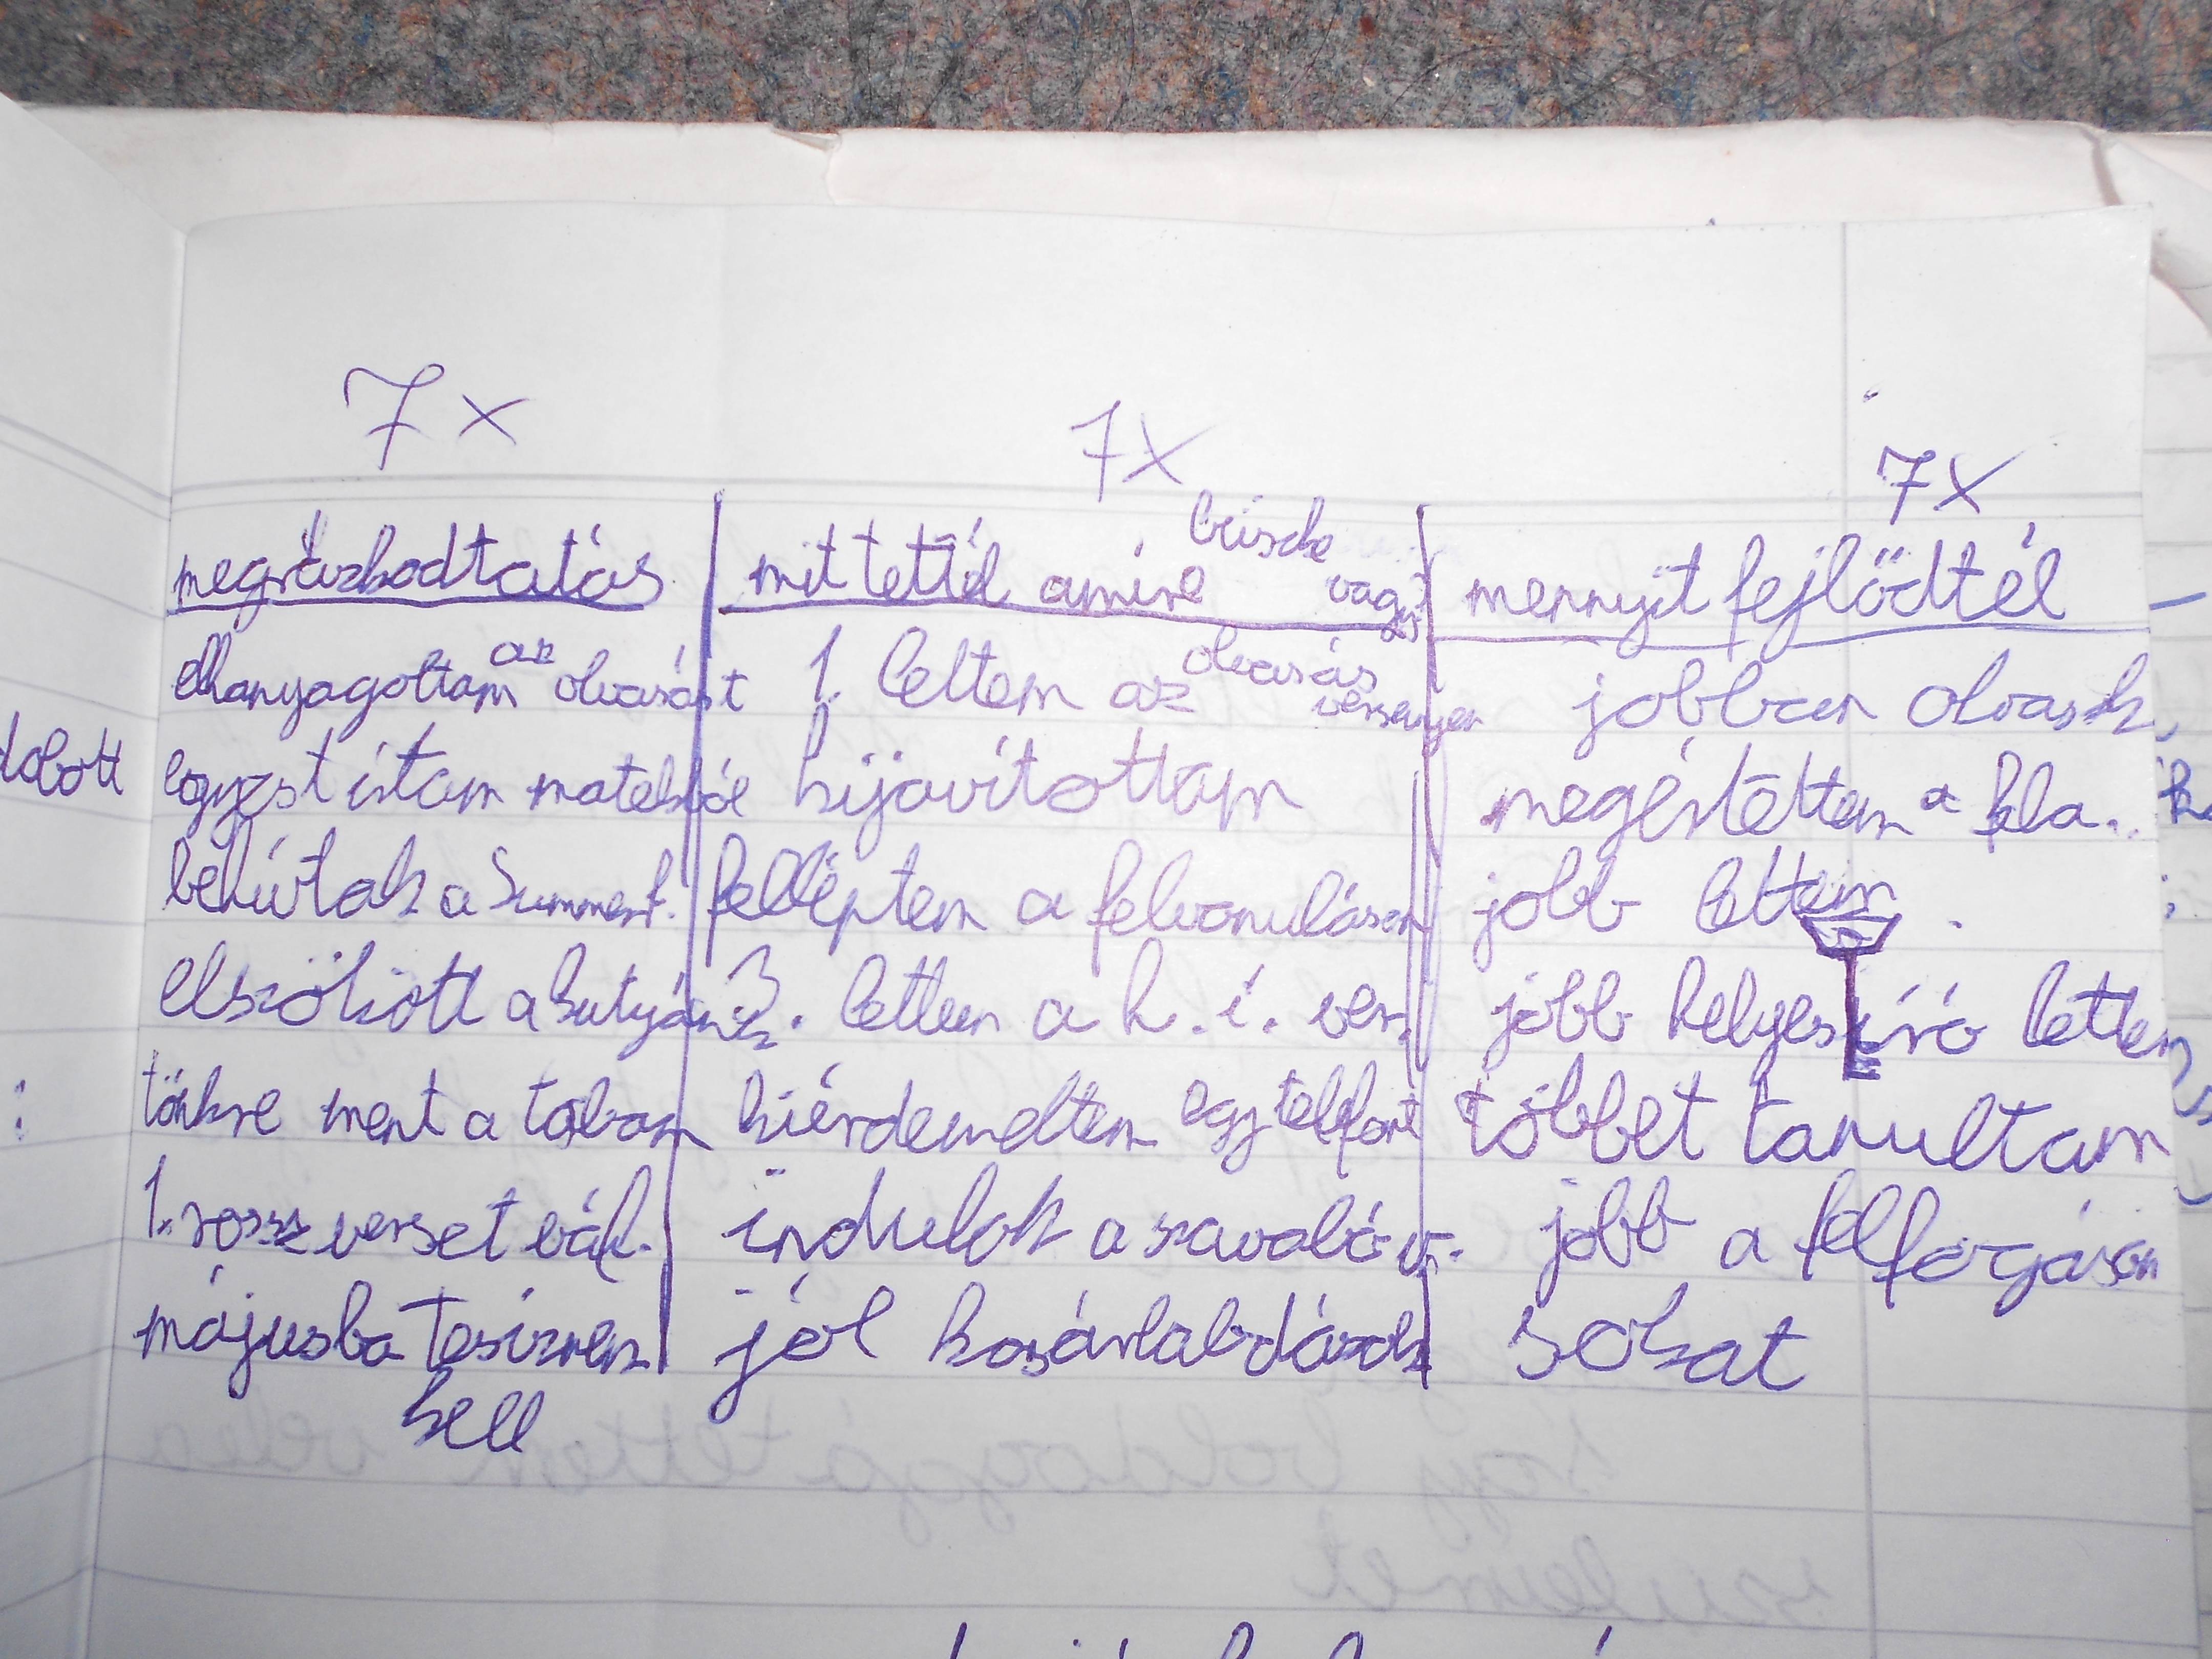 7x 7x 7x
megrázkodtatás mit tettél amire büszke vagy? mennyit fejlődtél
elhanyagoltam az olvasást 1. lettem az olvasás versenyen jobban olvasok
dobott egyest írtam matekból kijavítottam megértettem a fela..
behívtak a felléptem a felvonuláson jobb lettem.
elszökött a kutyánk 3. lettem a h. í. ver. jobb helyesíró lettem
tönkre ment a tabom kiérdemeltem egy telefont többet tanultam
1. rossz verset vál. indulok a szavaló v. jobb a felfogásom
májusba jól kosárlabdázok sokat
kell